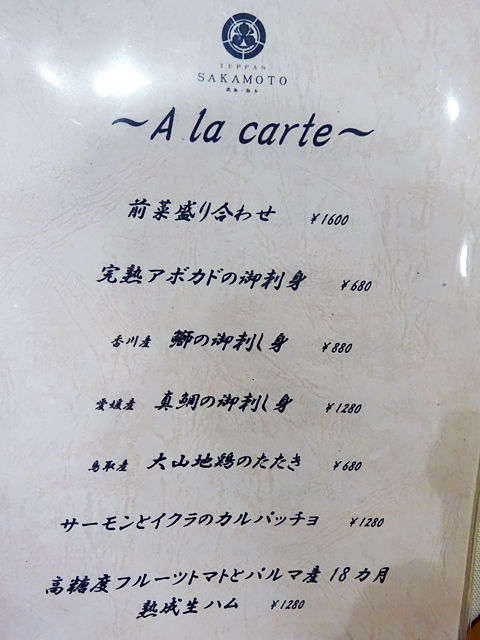 TEPPAN
SAKAMOTO
鉄板・坂本
～A la carte～
前菜盛り合わせ ¥1600
完熟アボカドの御刺身 ¥680
香川産 鰤の御刺し身 ¥880
愛媛産 真鯛の御刺し身 ¥1280
鳥取産 大山地鶏のたたき ¥680
サーモンとイクラのカルパッチョ ¥1280
高糖度フルーツトマトとパルマ産 18カ月
熟成生ハム ¥1280